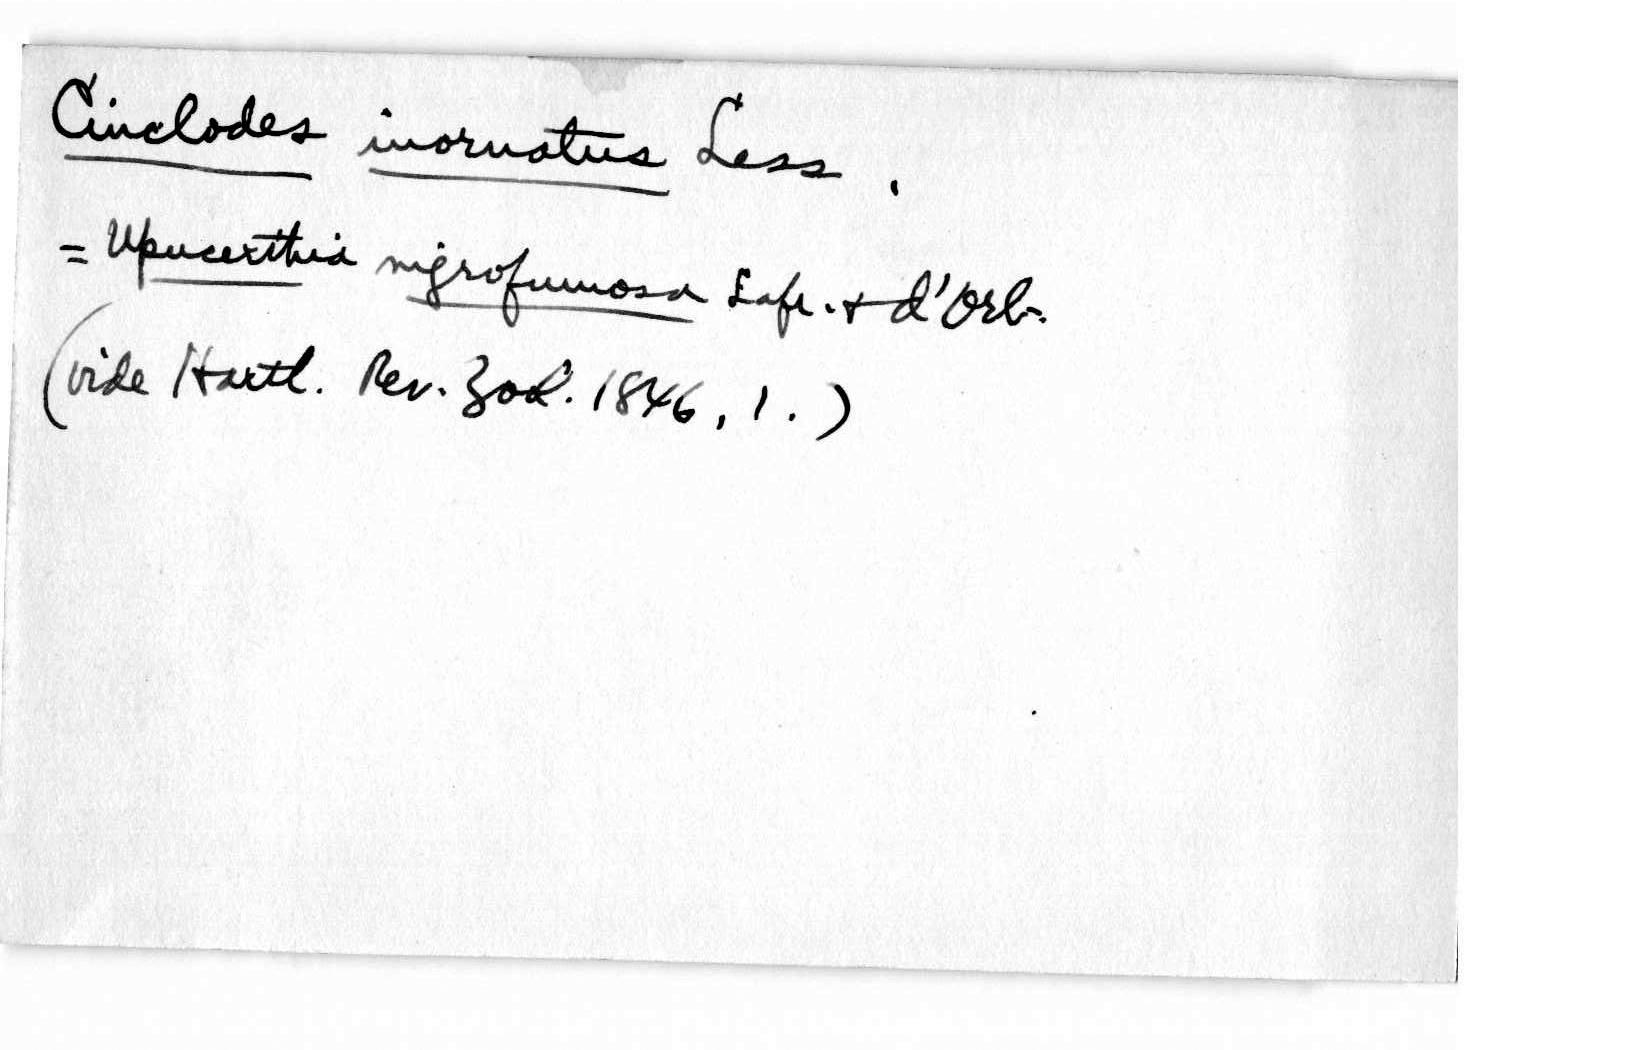 Cinclodes inornatus Less.
= Upucerthia nigrofumosa Lafr. & d'Orb.
(vide Hartl. Rev. Zool. 1846, 1.)